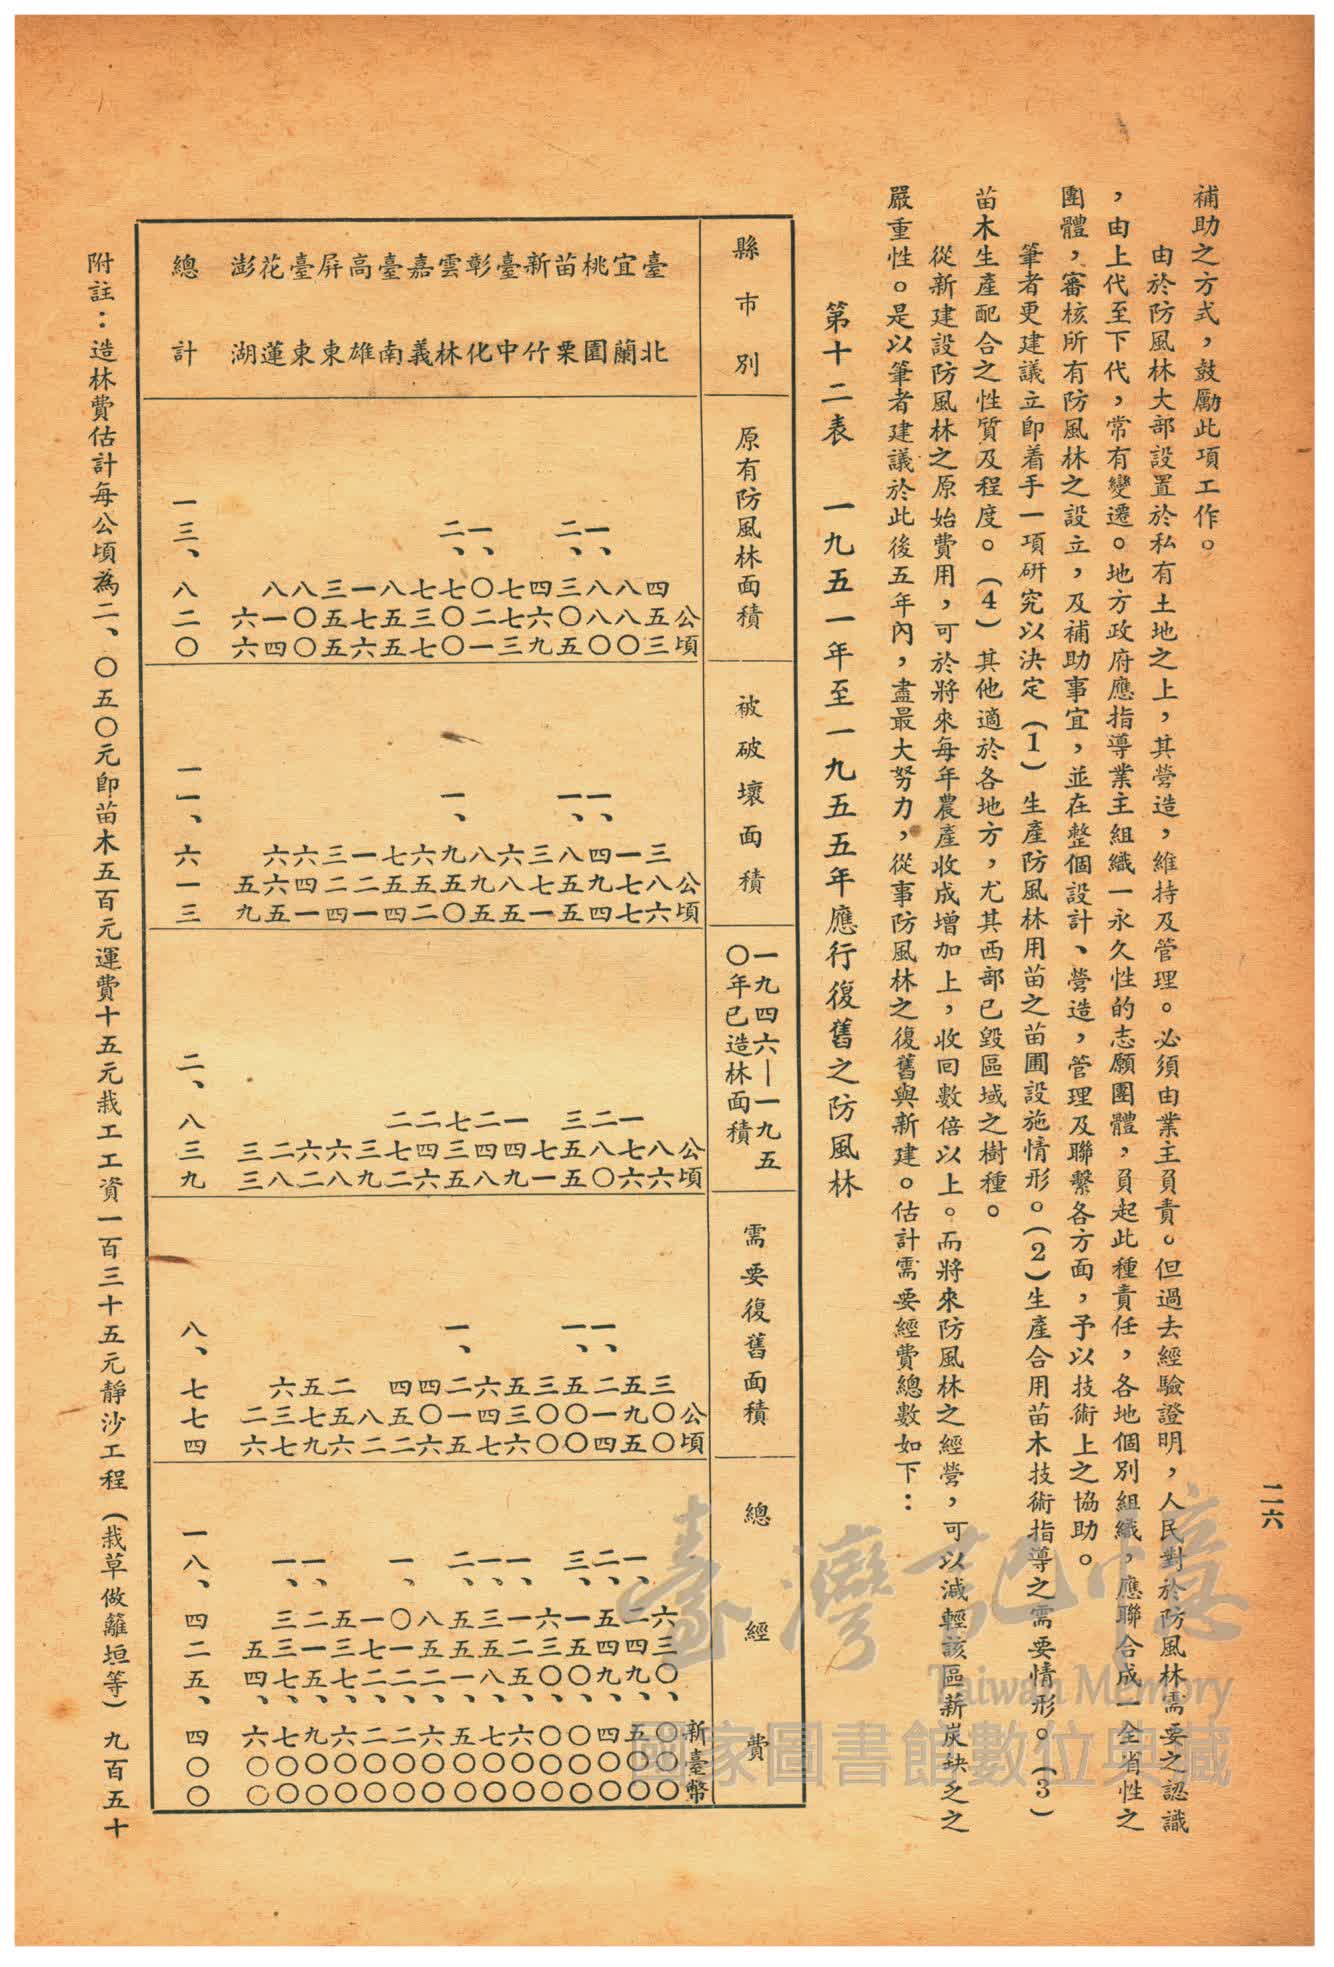 二六
補助之方式，鼓勵此項工作。
由於防風林大部設置於私有土地之上，其營造，維持及管理。必須由業主負責。但過去經驗證明，人民對於防風林需要之認識
，由上代至下代，常有變遷。地方政府應指導業主組織一永久性的志願團體，負起此種責任，各地個別組織，應聯合成一全省性之
團體，審核所有防風林之設立，及補助事宜，並在整個設計、營造，管理及聯繫各方面，予以技術上之協助。
筆者更建議立即着手一項研究以決定（1）生產防風林用苗之苗圃設施情形。（2）生產合用苗木技術指導之需要情形。（3）
苗木生產配合之性質及程度。（4）其他適於各地方，尤其西部已毀區域之樹種。
從新建設防風林之原始費用，可於將來每年農產收成增加上，收回數倍以上。而將來防風林之經營，可以減輕該區薪炭缺乏之
嚴重性。是以筆者建議於此後五年內，盡最大努力，從事防風林之復舊與新建。估計需要經費總數如下：
第十二表　一九五一年至一九五五年應行復舊之防風林
縣市別　原有防風林面積　被破壞面積　一九四六—一九五〇年已造林面積　需要復舊面積　總經費
公頃　公頃　公頃　公頃　新臺幣
臺北　四五三　三八六　八六　三〇〇　六三〇、〇〇〇
宜蘭　八八〇　一七七　一七六　五九五　一、二四九、五〇〇
桃園　一、八八〇　一、四九四　二八〇　一、二一四　二、五四九、四〇〇
苗栗　二、三〇五　一、八五五　三五五　一、五〇〇　三、一五〇、〇〇〇
新竹　四六九　三七一　七一　三〇〇　六三〇、〇〇〇
臺中　七〇三　六八五　一四九　五三六　一、一二五、六〇〇
彰化　一、〇二一　八九五　二四八　六四七　一、三五八、七〇〇
雲林　二、七〇〇　一、九五〇　七三五　一、二一五　二、五五一、五〇〇
嘉義　七三七　六五二　二四六　四〇六　八五二、六〇〇
臺南　八五五　七五四　二七二　四五二　一、〇一二、二〇〇
高雄　一七六　一二一　三九　八二　一七二、二〇〇
屏東　三五五　三二四　六八　二五六　五三七、六〇〇
臺東　八〇〇　六四一　六二　五七九　一、二一五、九〇〇
花蓮　八一四　六六五　二八　六三七　一、三三七、七〇〇
澎湖　六六　五九　三三　二六　五四、六〇〇
總計　一三、八二〇　一一、六一三　二、八三九　八、七七四　一八、四二五、四〇〇
附註：造林費估計每公頃為二、〇五〇元即苗木五百元運費十五元栽工工資一百三十五元靜沙工程（栽草做籬垣等）九百五十
臺灣記憶
Taiwan Memory
國家圖書館數位典藏